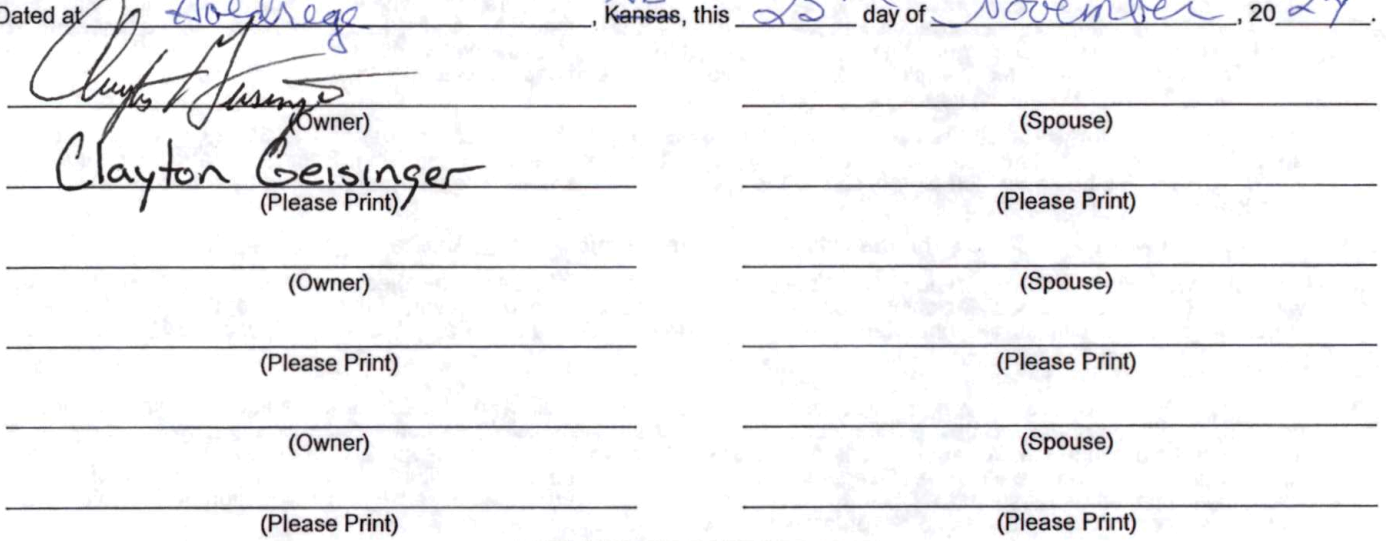 Dated at Holdrege, Kansas, this 25 day of November, 2024.
Clayton Geisinger
(Owner) (Spouse)
Clayton Geisinger
(Please Print) (Please Print)
(Owner) (Spouse)
(Please Print) (Please Print)
(Owner) (Spouse)
(Please Print) (Please Print)